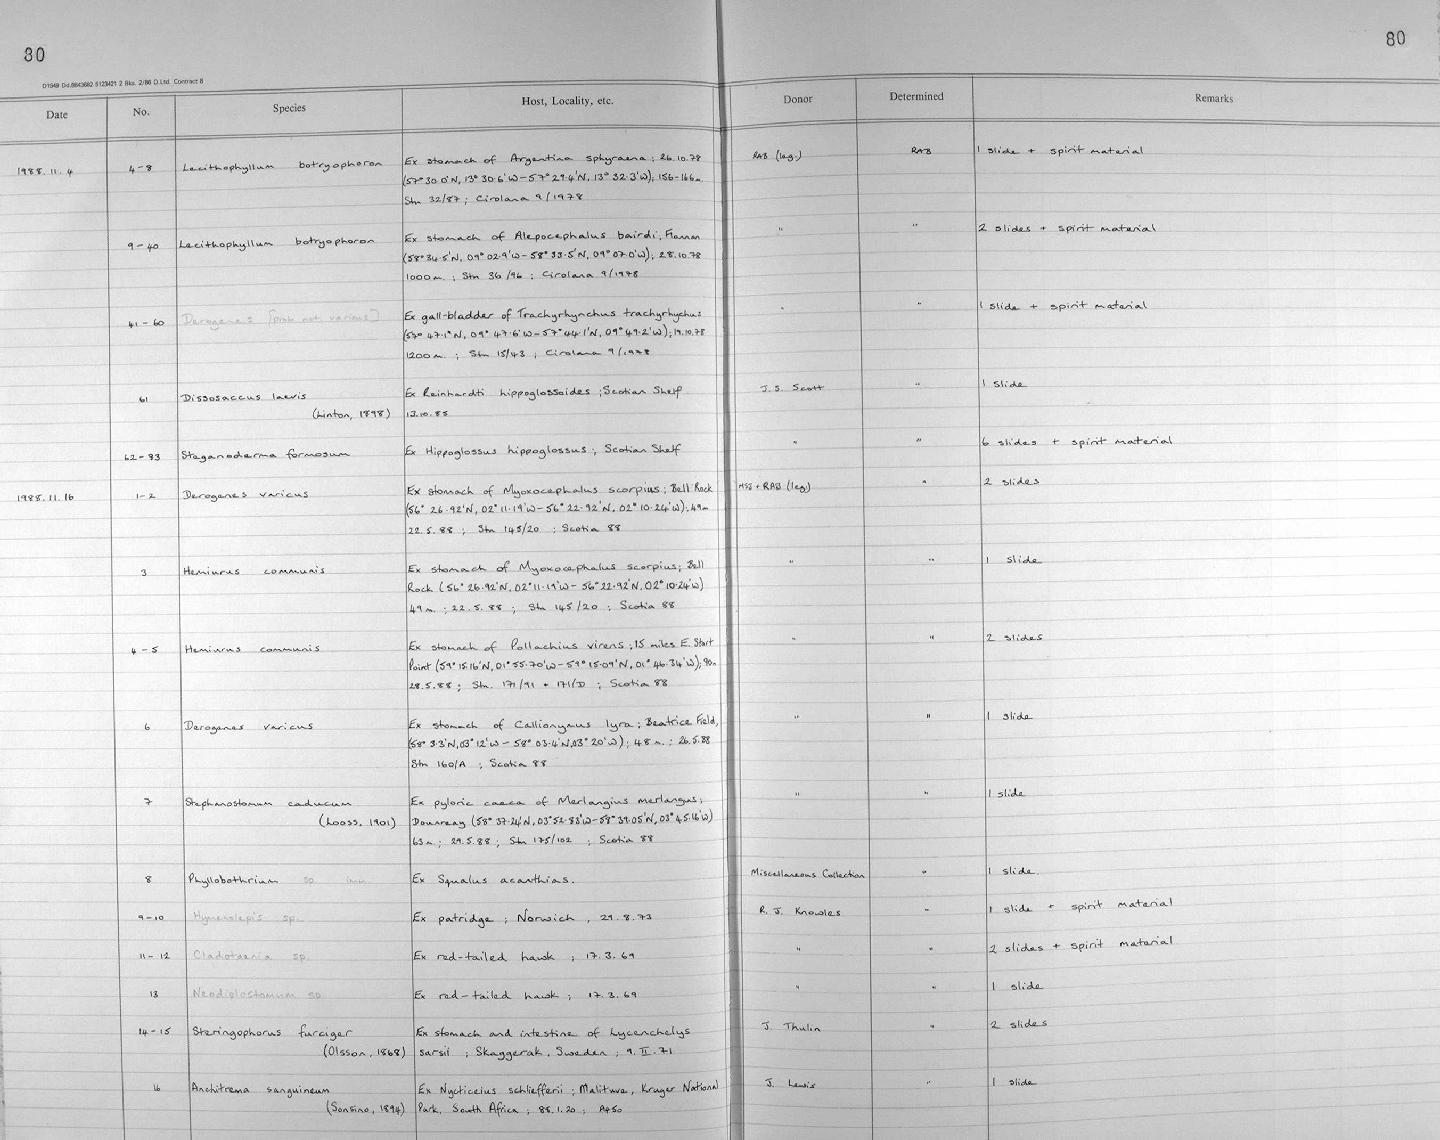 80
80
D1949 Dd.8843682 5123421 2 Bks. 2/86 D.Ltd. Contract 8
Date No. Species Host, Locality, etc. Donor Determined Remarks
1988.11.4 4-8 Lecithophyllum botryophoron Ex stomach of Argentina sphyraena; 26.10.78 RAB (leg.) RAB 1 slide + spirit material
(57°30.0'N, 13°30.6'W-57°29.4'N, 13°32.3'W); 156-166m.
Stn 32/87; Cirolana 9/1978
9-40 Lecithophyllum botryophoron Ex stomach of Alepocephalus bairdi; Flannan " " 2 slides + spirit material
(58°34.5'N, 09°02.9'W-58°33.5'N, 09°07.0'W); 28.10.78
1000m.; Stn 36/96; Cirolana 9/1978
41-60 Derogenes [prob not varicus] Ex gall-bladder of Trachyrhynchus trachyrhychus " " 1 slide + spirit material
(57°47.1'N, 09°47.6'W-57°44.1'N, 09°49.2'W); 19.10.78
1200m.; Stn 15/43; Cirolana 9/1978
61 Dissosaccus laevis Ex Reinhardti hippoglossoides; Scotian Shelf J.S. Scott " 1 slide
(Linton, 1898) 13.10.85
62-83 Steganoderma formosum Ex Hippoglossus hippoglossus; Scotian Shelf " " 6 slides + spirit material
1988.11.16 1-2 Derogenes varicus Ex stomach of Myoxocephalus scorpius; Bell Rock + RAB (leg.) " 2 slides
(56°26.92'N, 02°11.19'W-56°22.92'N, 02°10.24'W); 49m
22.5.88; Stn 145/20; Scotia 88
3 Hemiurus communis Ex stomach of Myoxocephalus scorpius; Bell " " 1 slide
Rock (56°26.92'N, 02°11.19'W-56°22.92'N, 02°10.24'W)
49m.; 22.5.88; Stn 145/20; Scotia 88
4-5 Hemiurus communis Ex stomach of Pollachius virens; 15 miles E. Start " " 2 slides
Point (59°15.16'N, 01°55.70'W-59°15.09'N, 01°46.34'W); 90m
28.5.88; Stn. 171/91 + 171/D; Scotia 88
6 Derogenes varicus Ex stomach of Callionymus lyra; Beatrice Field, " " 1 slide
(58°3.3'N, 03°12'W-58°03.4'N, 03°20'W); 48m.; 26.5.88
Stn 160/A; Scotia 88
7 Stephanostomum caducum Ex pyloric caeca of Merlangius merlangus; " " 1 slide
(Looss, 1901) Dounreay (58°37.24'N, 03°52.83'W-58°39.05'N, 03°45.16'W)
63m; 29.5.88; Stn 175/102; Scotia 88
8 Phyllobothrium sp imm Ex Squalus acanthias. Miscellaneous Collection " 1 slide.
9-10 Hymenolepis sp. Ex patridge; Norwich, 29.8.73 R.J. Knowles " 1 slide + spirit material
11-12 Cladotaenia sp Ex red-tailed hawk; 17.3.69 " " 2 slides + spirit material
13 Neodiplostomum sp. Ex red-tailed hawk; 17.3.69 " " 1 slide
14-15 Steringophorus furciger Ex stomach and intestine of Lycenchelys J. Thulin " 2 slides
(Olsson, 1868) sarsil; Skaggerak, Sweden; 9.II.71
16 Anchitrema sanguineum Ex Nycticeius schliefferii; Malituva, Kruger National J. Lewis " 1 slide
(Sonsino, 1894) Park, South Africa; 88.1.20; A450